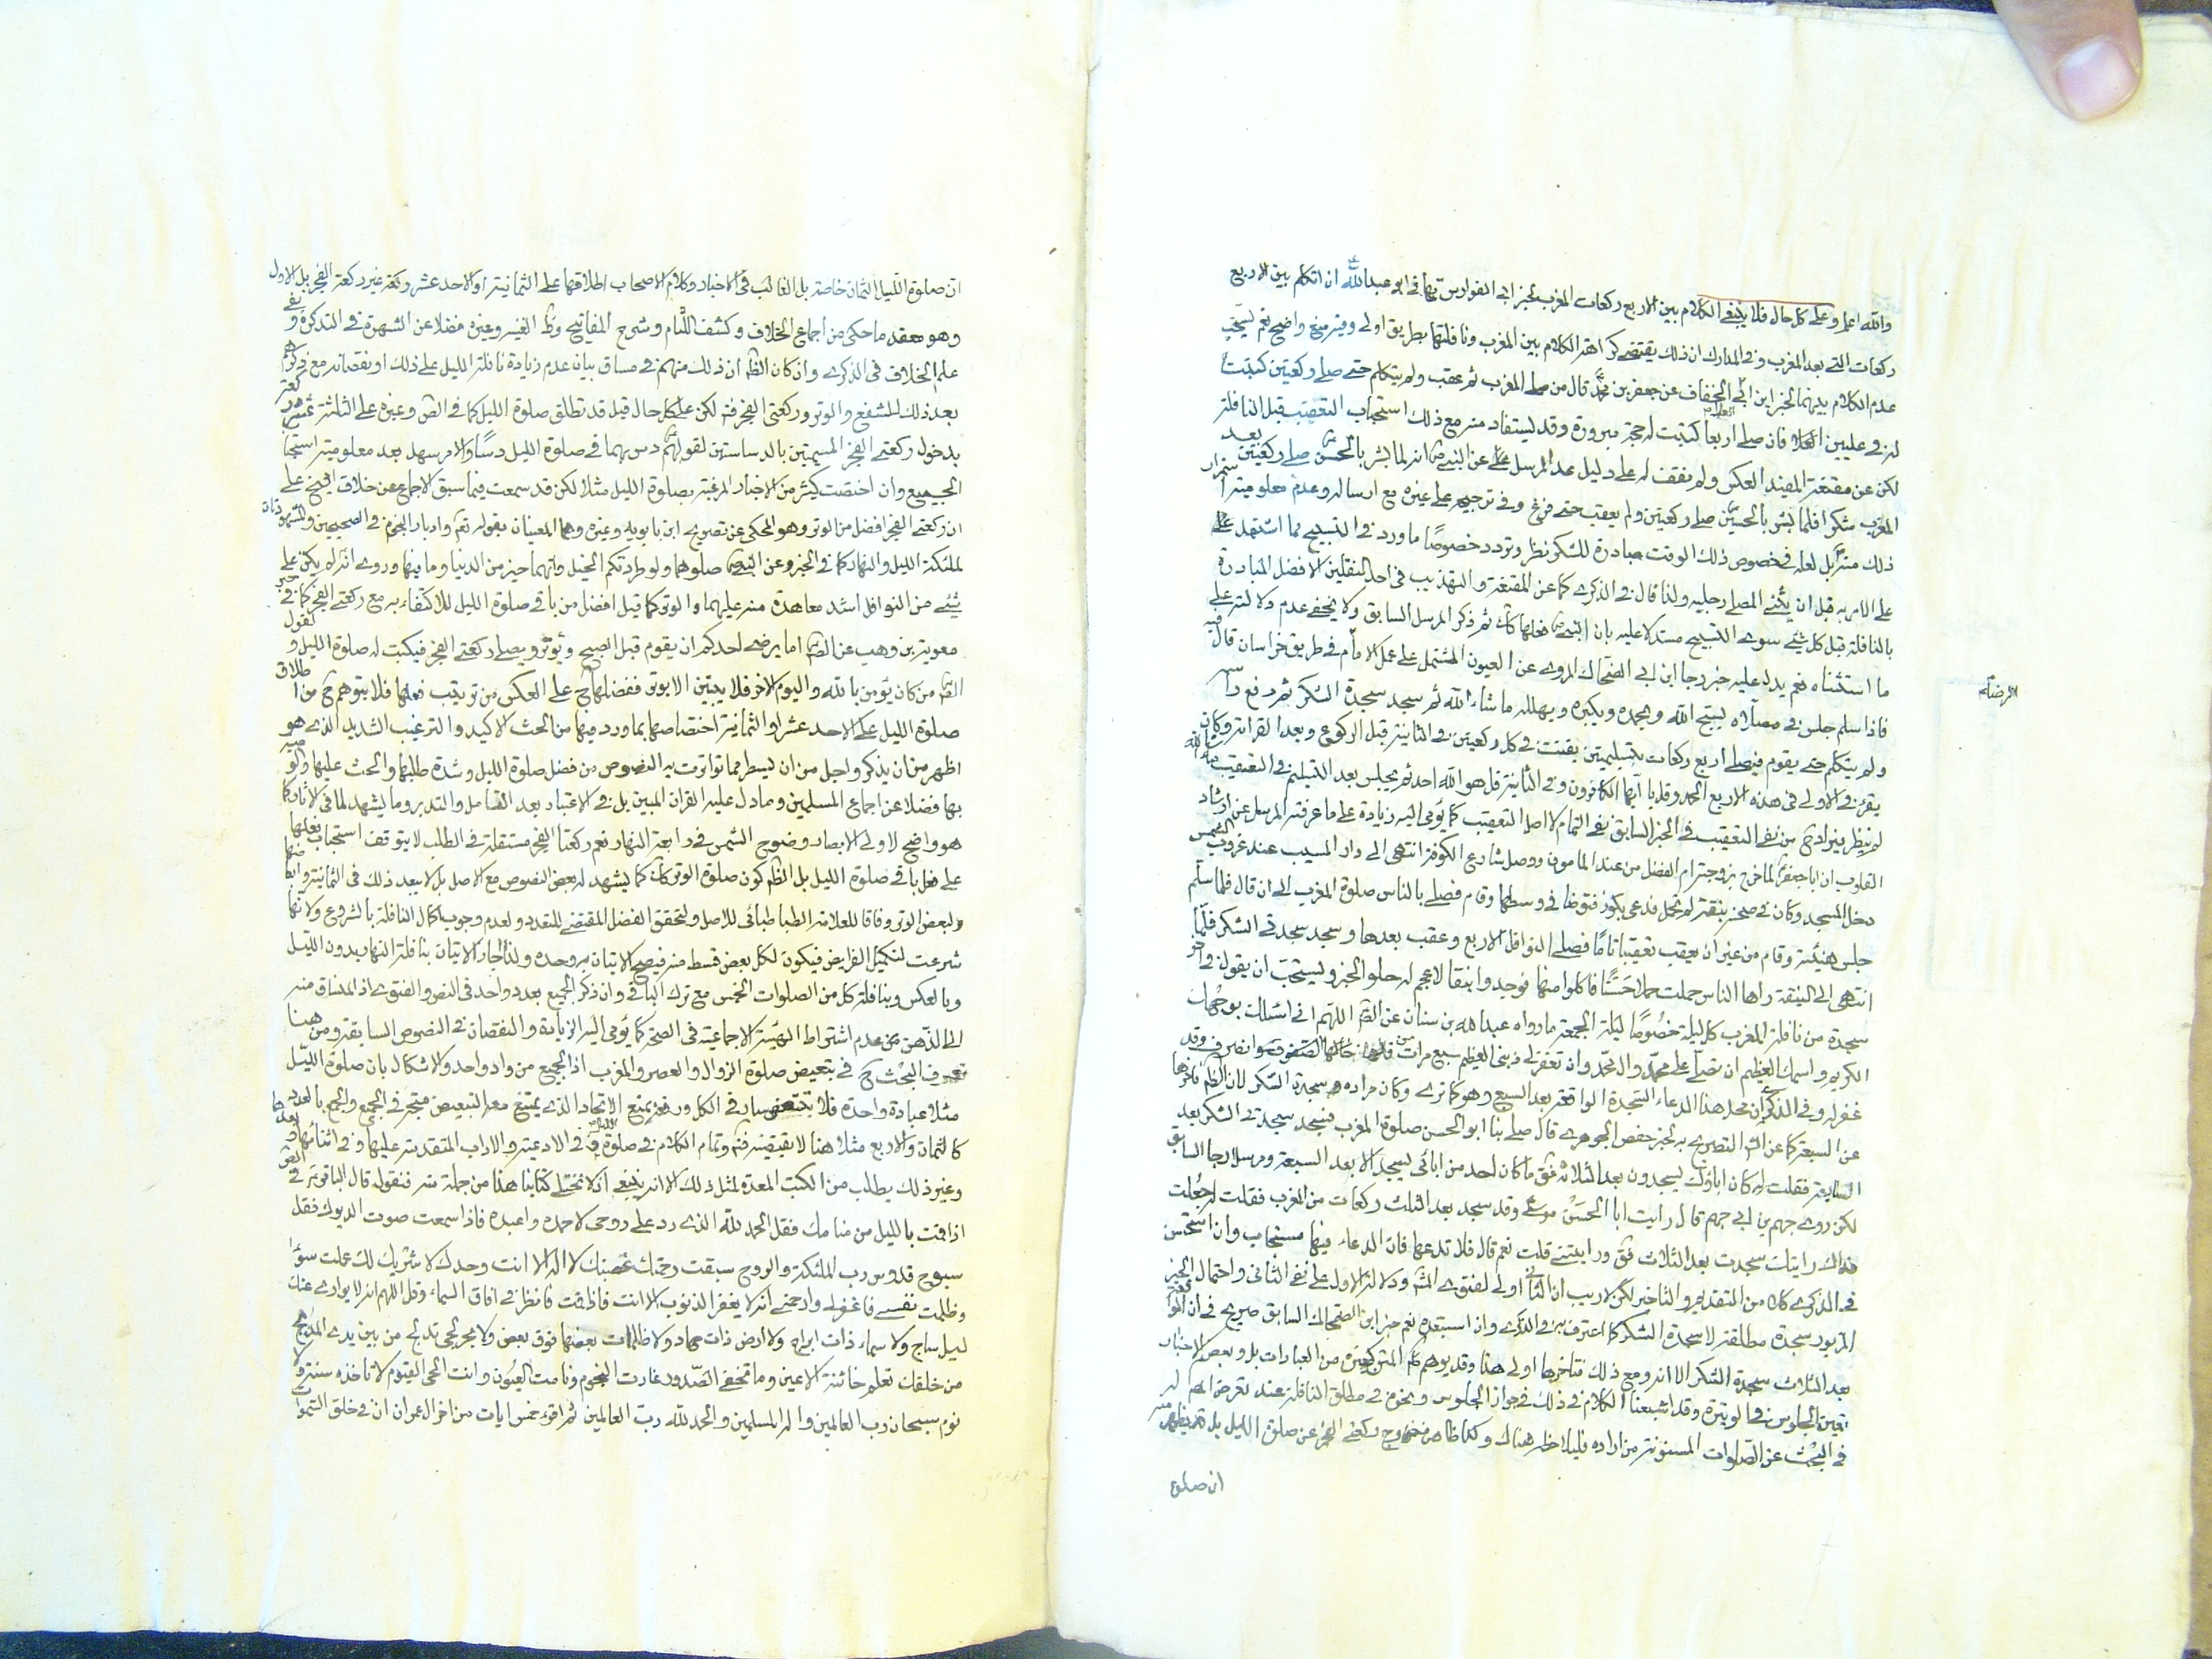 والله اعلم وعلى كل حال فلا ينبغى الكلام بين الاربع ركعات المغرب لخبر ابى الفوارس نهانى ابو عبدالله ع ان اتكلم بين الاربع
ركعات التى بعد المغرب وفى المدارك ان ذلك يقتضى كراهة الكلام بين المغرب ونافلتها بطريق اولى وفيه منع واضح نعم يستحب
عدم الكلام بينهما لخبر ابى الخفاف عن جعفر بن محمد قال من صلى المغرب ثم عقب ولم يتكلم حتى صلى ركعتين كتبتا
له فى عليين فان صلى اربعا كتبت له حجة مبرورة وقد يستفاد منه مع ذلك استحباب التعقيب قبل النافلة
لكن عن مقنعة المفيد العكس ولم نقف له على دليل عدا المرسل عن النبى ص انه لما بشر بالحسن صلى ركعتين بعد
المغرب شكرا فلما بشر بالحسين صلى ركعتين ولم يعقب حتى فرغ وفى ترجيحه على غيره مع ارساله وعدم معلومية استمرار
ذلك منه بل لعله فى خصوص ذلك الوقت مبادرة للشكر نظر وتردد خصوصًا ما ورد فى التسبيح مما اشتمل على
على الامر به قبل ان يثنى المصلى رجليه ولذا قال فى الذكرى كما عن المقنعة والتهذيب فى احد النقلين الافضل المبادرة
بالنافلة قبل كل شىء سوى التسبيح مستدلا عليه بان النبى ص فعلها كك ثم ذكر المرسل السابق ولا يخفى عدم دلالته على
ما استثناه نعم يدل عليه خبر رجا ابن ابى الضحاك المروى عن العيون المشتمل على عمل الامام فى طريق خراسان قال فيه
فاذا سلم جلس فى مصلاه يسبح الله ويحمده ويكبره ويهلله ما شاء الله ثم سجد سجدة الشكر ثم رفع راسه
ولم يتكلم حتى يقوم فيصلى اربع ركعات بتسليمتين يقنت فى كل ركعتين فى الثانية قبل الركوع وبعد القرائة وكان
يقرء فى الاولى فى هذه الاربع الحمد وقل يا ايها الكافرون وفى الثانية قل هو الله احد ثم يجلس بعد التسليم فى التعقيب ما شاء الله
من نفى التعقيب فى الخبر السابق نفى التمام لا اصل التعقيب كما يؤمى اليه زيادة على ما عرفته المرسل عن ارشاد
القلوب ان ابا جعفر لما خرج بزوجته ام الفضل من عند المامون ووصل شارع الكوفة انتهى الى دار المسيب عند غروب الشمس
دخل المسجد وكان فى صحنه نبقة لم تحمل فدعى بكوز فتوضا فى وسطها وقام فصلى بالناس صلوة المغرب الى ان قال فلما سلم
جلس هنيئة وقام من غير ان يعقب تعقيبا تاما فصلى النوافل الاربع وعقب بعدها وسجد سجدتى الشكر فلما
انتهى الى النبقة راها الناس حملت حملا حسنًا فاكلوا منها فوجدوا نبقا لا عجم له حلوا الخبر ويستحب ان يقول فى اخر
سجدة من نافلة المغرب كل ليلة خصوصًا ليلة الجمعة ما رواه عبدالله بن سنان عن الصم اللهم انى اسئلك بوجهك
الكريم واسمك العظيم ان تصلى على محمد وال محمد وان تغفر لى ذنبى العظيم سبع مرات وانصرف وقد
غفر له وفى الذكرى ان محل هذا الدعاء السجدة الواقعة بعد السبع وهو كما ترى وكان مراده سجدة الشكر لان الظ تاخرها
عن السبعة كما عن التصريح به لخبر حفص الجوهرى قال صلى بنا ابو الحسن صلوة المغرب فسجد سجدتى الشكر بعد
السابعة فقلت له كان اباؤك يسجدون بعد الثلاثة فق ما كان احد من ابائى يسجد الا بعد السبعة ومرسل رجا السابق
لكن روى جهم بن ابى جهم قال رايت ابا الحسن موسى وقد سجد بعد الثلث ركعات من المغرب فقلت له جعلت
فداك رايتك سجدت بعد الثلاث فق ورايتنى قلت نعم قال فلا تدعها فان الدعاء فيها مستجاب وان استحسن
فى الذكرى كلا من التقديم والتاخير لكن لا ريب ان الثانى اولى لفتوى المش ودلالة الاول على نفى الثانى واحتمال الخبر
المزبور سجدة مطلقة لا سجدة الشكر كما اعترف به فى الذكرى وان استبعده نعم خبر ابن الضحاك السابق صريح فى ان
بعد الثلاث سجدة الشكر الا انه ومع ذلك فتاخرها اولى هذا وقد يوهم المتن كغيره من العبارات بل وبعض الاخبار
تعين الجلوس فى الوتيرة وقد اشبعنا الكلام فى ذلك فى جواز الجلوس ونحوه فى مطلق النافلة عند تعرض المص له
فى البحث عن الصلوات المسنونة من اراده فليلاحظه هناك وكذا خروج ركعتى الفجر عن صلوة الليل بل قد يظهر منه
ان صلوة
ان صلوة الليل الثمان خاصة بل الغالب فى الاخبار وكلام الاصحاب اطلاقها على الثمانية او الاحد عشر ركعة غير ركعتى الفجر بل الاول
وهو معقد ما حكى من اجماع الخلاف وكشف اللثام وشرح المفاتيح وظ الغنية وغيره فضلا عن الشهرة فى التذكرة ونفى
علم الخلاف فى الذكرى وان كان الظ ان ذلك منهم فى مساق بيان عدم زيادة نافلة الليل على ذلك او نقصانه مع ذكرهم
بعد ذلك الشفع والوتر وركعتى الفجر فت لكن على كل حال قبل قد تطلق صلوة الليل كما فى النص وغيره على الثلثة عشر ركعة
بدخول ركعتى الفجر المسميتين بالدساستين لقولهم ع دس بهما فى صلوة الليل دسًا والامر سهل بعد معلومية استحباب
الجميع وان اختصت كثير من الاخبار المرغبة بصلوة الليل مثلا لكن قد سمعت فيما سبق الاجماع عن خلاف الشيخ على
ان ركعتى الفجر افضل من الوتر وهو المحكى عن تصريح ابن بابويه وغيره وهما المعنيان بقوله تعم وادبار النجوم فى الصحيحين والمشهودتان
لملئكة الليل والنهار كما فى الخبر وعن النبى ص صلوهما ولو طردتكم الخيل وانهما خير من الدنيا وما فيها وروى انه لم يكن على
شىء من النوافل اشد معاهدة منه عليهما والوتر كما قيل افضل من باقى صلوة الليل للاكتفاء به مع ركعتى الفجر كما فى خبر
معوية بن وهب عن الصم اما يرضى احدكم ان يقوم قبل الصبح ويوتر ويصلى ركعتى الفجر فيكتب له صلوة الليل ولقول
الصم من كان يؤمن بالله واليوم الاخر فلا يبيتن الا بوتر ففضلها ح على العكس من ترتيب فعلها فلا يتوهم ح من اطلاق
صلوة الليل على الاحد عشر او الثمانية اختصاصها بما ورد فيها من الحث الاكيد والترغيب الشديد الذى هو
اظهر من ان يذكر واجل من ان يسطر مما تواترت به النصوص من فضل صلوة الليل وشدة طلبها والحث عليها
بها فضلا عن اجماع المسلمين وما دل عليه القران المبين بل فى الاعتبار بعد التامل والتدبر وما يشهد لما فى الاثار كما
هو واضح لاولى الابصار وضوح الشمس فى رابعة النهار نعم ركعتا الفجر مستقلة فى الطلب لا يتوقف استحباب فعلها
على فعل باقى صلوة الليل بل الظ كون صلوة الوتر كك كما يشهد له بعض النصوص مع الاصل بل لا يبعد ذلك فى الثمانية وابعاضها
ولبعض الوتر وفاقا للعلامة الطباطبائى للاصل ولتحقق الفضل المقتضى للتعدد ولعدم وجوب اكمال النافلة بالشروع ولانها
شرعت لتكميل الفرايض فيكون لكل بعض قسط منه فيصح الاتيان به وحده ولذا جاز الاتيان بنافلة النهار بدون الليل
وبالعكس وبنافلة كل من الصلوات الخمس مع ترك الباقى وان ذكر الجميع بعدد واحد فى النص والفتوى اذ المنساق منه
الى الذهن من عدم اشتراط الهيئة الاجماعية فى الصحة كما يؤمى اليه الزيادة والنقصان فى النصوص السابقة ومن هنا
تعرف البحث ح فى تبعيض صلوة الزوال والعصر والمغرب اذ الجميع من واد واحد والاشكال بان صلوة الليل
مثلا عبادة واحدة فلا تتبعض سار فى الكل ورفع بمنع الاتحاد الذى يمتنع معه التبعيض متجه فى الجميع والجمع بالعدد
كالثمان والاربع مثلا هنا لا يقتضيه فت وتمام الكلام فى صلوة الليل فى الادعية والاداب المتقدمة عليها وفى اثنائها وبعدها
وغير ذلك يطلب من الكتب المعدة لمثل ذلك الا انه ينبغى ان لا نخلى كتابنا هذا من جملة منه فنقول قال الباقر ع فى
اذا قمت بالليل من منامك فقل الحمد لله الذى رد على روحى لاحمده واعبده فاذا سمعت صوت الديوك فقل
سبوح قدوس رب الملئكة والروح سبقت رحمتك غضبك لا اله الا انت وحدك لا شريك لك عملت سوءا
وظلمت نفسى فاغفر لى وارحمنى انه لا يغفر الذنوب الا انت فاذا قمت فانظر فى افاق السماء وقل اللهم انه لا يوارى عنك
ليل ساج ولا سماء ذات ابراج ولا ارض ذات مهاد ولا ظلمات بعضها فوق بعض ولا بحر لجى تدلج من بين يدى المدلج
من خلقك تعلم خائنة الاعين وما تخفى الصدور غارت النجوم ونامت العيون وانت الحى القيوم لا تاخذه سنة ولا
نوم سبحان رب العالمين واله المرسلين والحمد لله رب العالمين ثم اقرء خمس ايات من اخر ال عمران ان فى خلق السموات